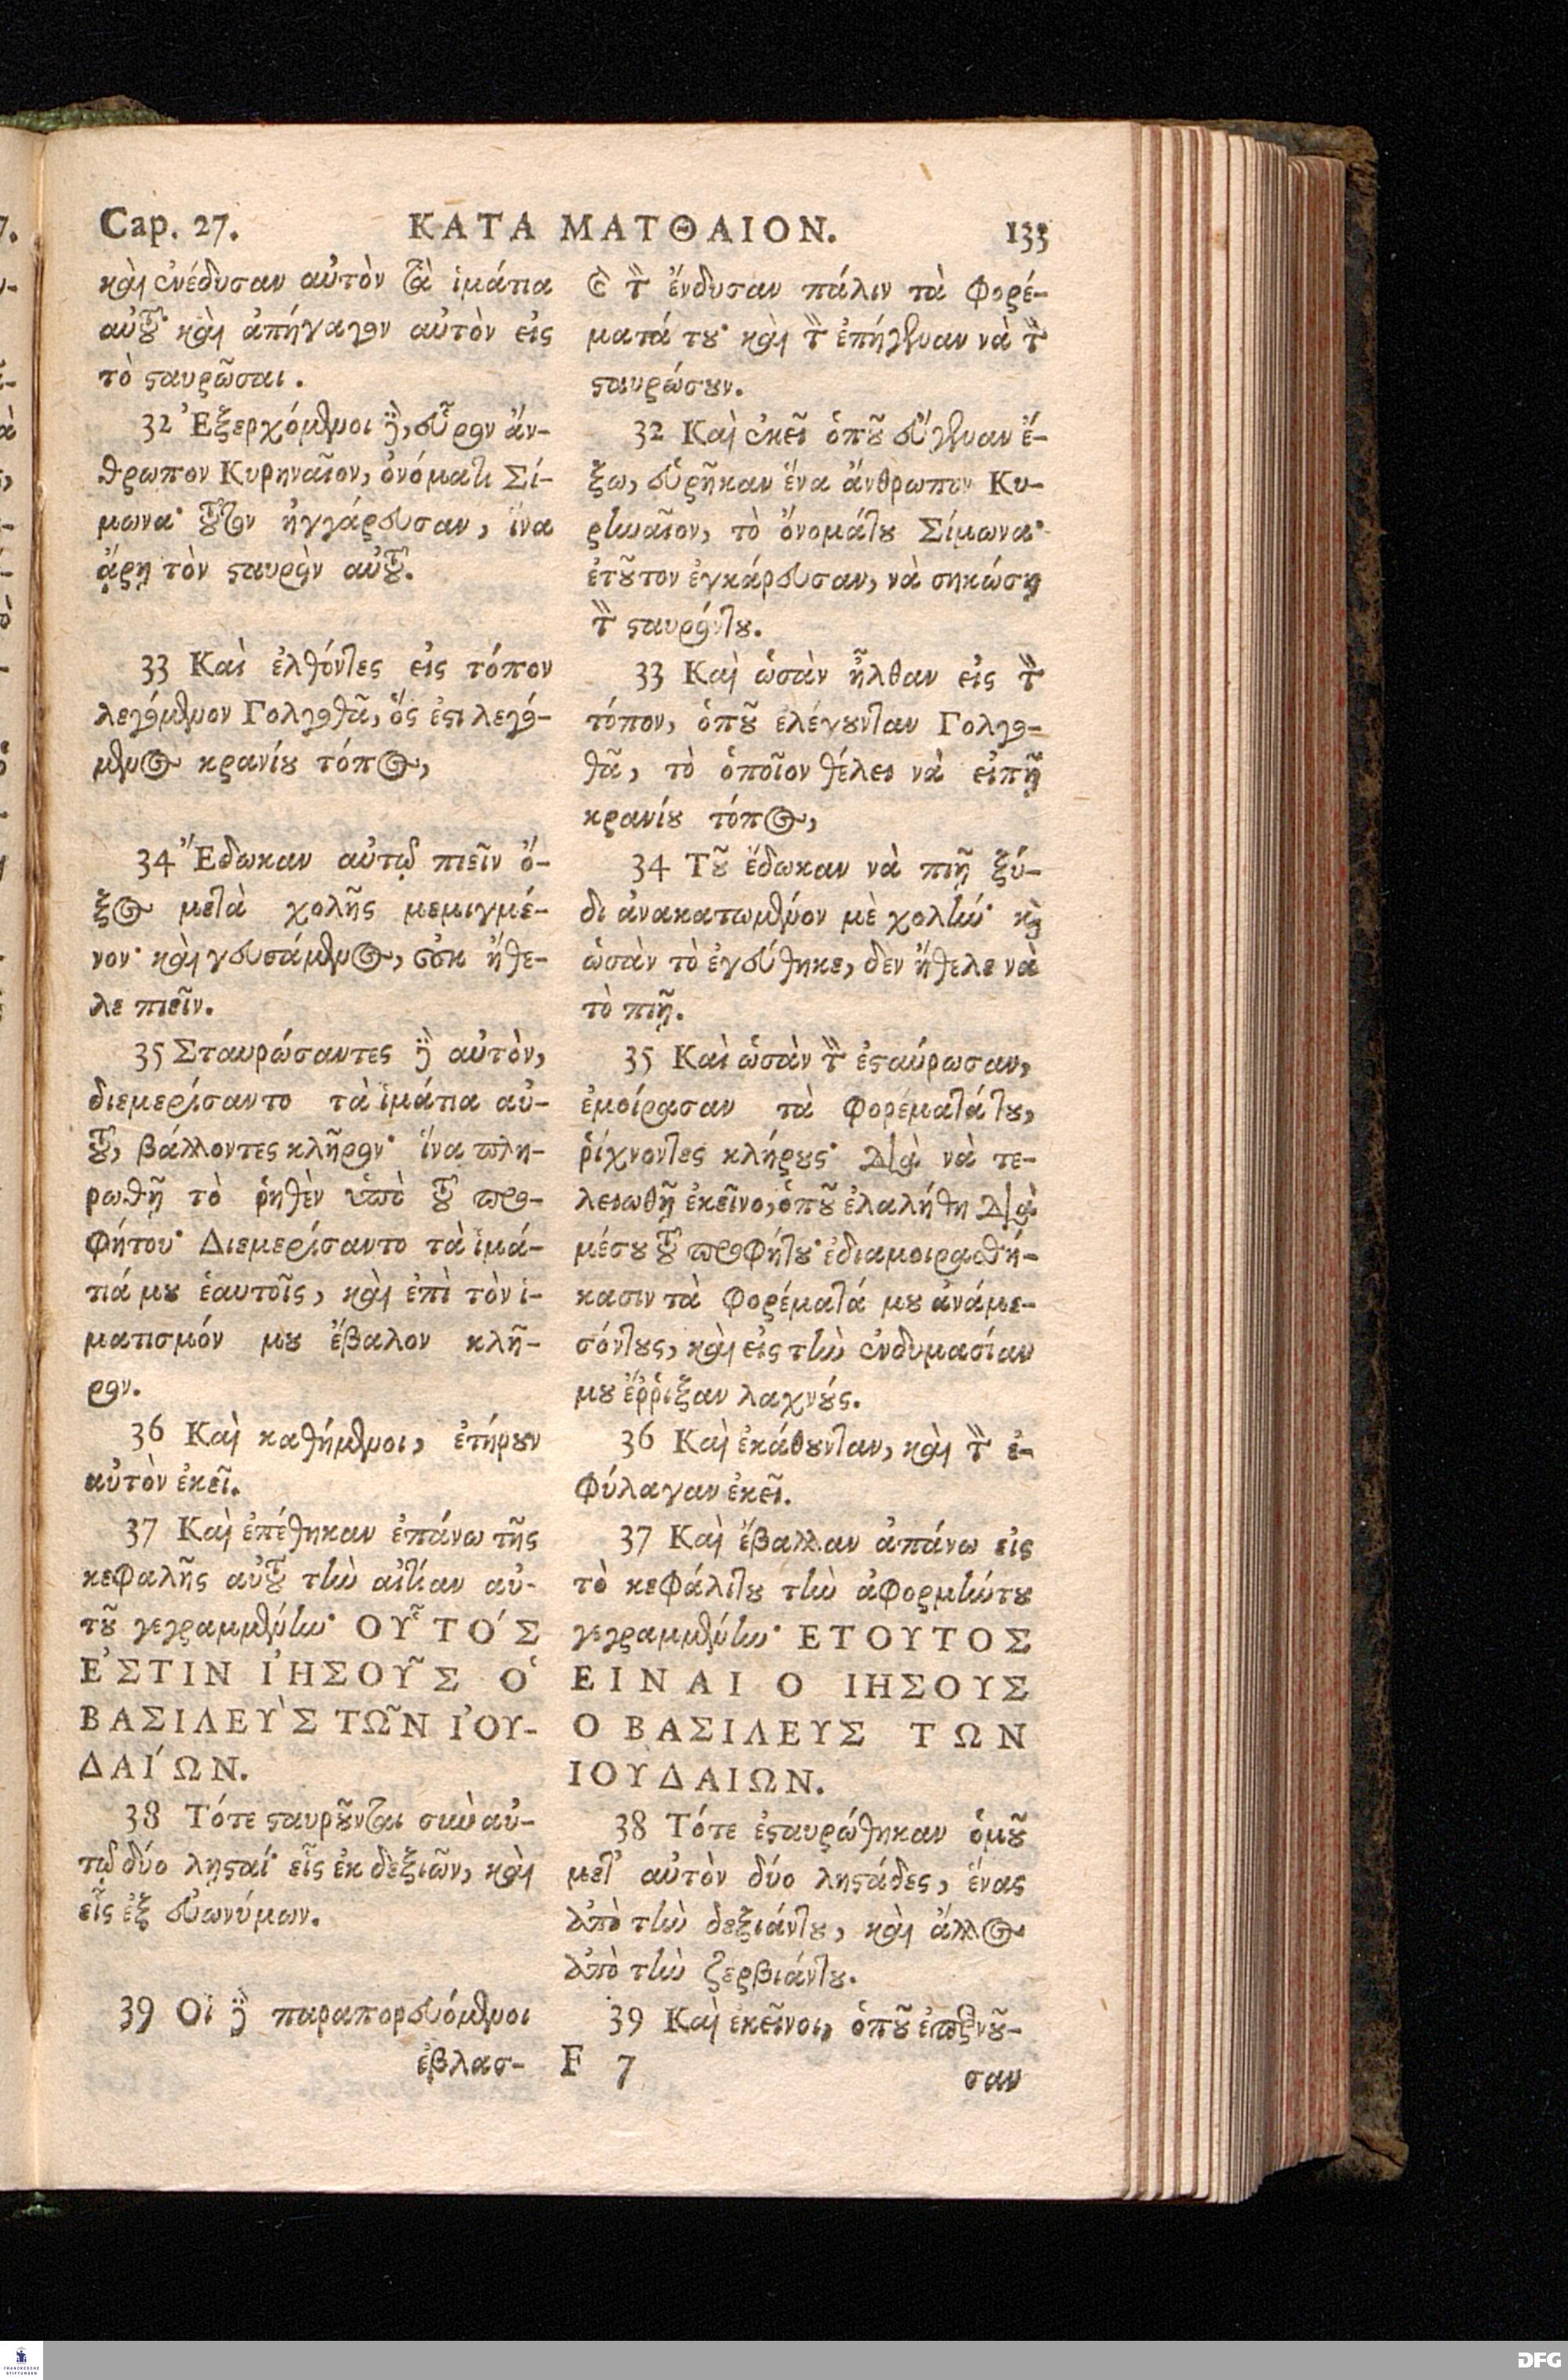 Cap. 27. ΚΑΤΑ ΜΑΤΘΑΙΟΝ. 133
καὶ ἐνέδυσαν αὐτὸν τὰ ἱμάτια
αὐτοῦ· καὶ ἀπήγαγον αὐτὸν εἰς
τὸ ϛαυρῶσαι.
32 Ἐξερχόμενοι δὲ, εὗρον ἄν-
θρωπον Κυρηναῖον, ὀνόματι Σί-
μωνα· τοῦτον ἠγγάρευσαν, ἵνα
ἄρῃ τὸν ϛαυρὸν αὐτοῦ.
33 Καὶ ἐλθόντες εἰς τόπον
λεγόμενον Γολγοθᾶ, ὅς ἐϛι λεγό-
μενος κρανίου τόπος,
34 Ἔδωκαν αὐτῷ πιεῖν ὄ-
ξος μετὰ χολῆς μεμιγμέ-
νον· καὶ γευσάμενος, οὐκ ἤθε-
λε πιεῖν.
35 Σταυρώσαντες δὲ αὐτὸν,
διεμερίσαντο τὰ ἱμάτια αὐ-
τοῦ, βάλλοντες κλῆρον· ἵνα πλη-
ρωθῇ τὸ ῥηθὲν ὑπὸ τοῦ προ-
φήτου· Διεμερίσαντο τὰ ἱμά-
τιά μου ἑαυτοῖς, καὶ ἐπὶ τὸν ἱ-
ματισμόν μου ἔβαλον κλῆ-
ρον.
36 Καὶ καθήμενοι, ἐτήρουν
αὐτὸν ἐκεῖ.
37 Καὶ ἐπέθηκαν ἐπάνω τῆς
κεφαλῆς αὐτοῦ τὴν αἰτίαν αὐ-
τοῦ γεγραμμένην· ΟΥ͂ΤΟ΄Σ
Ἐ΄ΣΤΙΝ Ἰ΄ΗΣΟΥ͂Σ Ὁ
ΒΑΣΙΛΕῪΣ ΤΩ͂Ν Ἰ΄ΟΥ-
ΔΑΊΩΝ.
38 Τότε ϛαυροῦνται σὺν αὐ-
τῷ δύο λῃϛαί· εἷς ἐκ δεξιῶν, καὶ
εἷς ἐξ εὐωνύμων.
39 Οἱ δὲ παραπορευόμενοι
ἐβλασ-
καὶ τὸν ἔνδυσαν πάλιν τὰ φορέ-
ματά του· καὶ τὸν ἐπήγεναν νὰ τὸν
ϛαυρώσουν.
32 Καὶ ἐκεῖ ὁποῦ εὔγεναν ἔ-
ξω, εὑρῆκαν ἕνα ἄνθρωπον Κυ-
ρηναῖον, τὸ ὄνομάτου Σίμωνα·
ἐτοῦτον ἐγκάρευσαν, νὰ σηκώσῃ
τὸν ϛαυρόντου.
33 Καὶ ὡσὰν ἦλθαν εἰς τὸν
τόπον, ὁποῦ ἐλέγουνταν Γολγο-
θᾶ, τὸ ὁποῖον θέλει νὰ εἰπῇ
κρανίου τόπος,
34 Τοῦ ἔδωκαν νὰ πιῇ ξύ-
δι ἀνακατωμένον μὲ χολήν· καὶ
ὡσὰν τὸ ἐγεύθηκε, δεν ἤθελε νὰ
τὸ πιῇ.
35 Καὶ ὡσὰν τὸν ἐϛαύρωσαν,
ἐμοίρασαν τὰ φορέματάτου,
ῥίχνοντες κλήρους· διὰ νὰ τε-
λειωθῇ ἐκεῖνο, ὁποῦ ἐλαλήθη διὰ
μέσου τοῦ προφήτου· ἐδιαμοιραθή-
κασιν τὰ φορέματά μου ἀνάμε-
σόντους, καὶ εἰς τὴν ἐνδυμασίαν
μου ἔῤῥιξαν λαχνούς.
36 Καὶ ἐκάθουνταν, καὶ τὸν ἐ-
φύλαγαν ἐκεῖ.
37 Καὶ ἔβαλλαν ἀπάνω εἰς
τὸ κεφάλιτου τὴν ἀφορμήντου
γεγραμμένην· ΕΤΟΥΤΟΣ
ΕΙΝΑΙ Ο ΙΗΣΟΥΣ
Ο ΒΑΣΙΛΕΥΣ ΤΩΝ
ΙΟΥΔΑΙΩΝ.
38 Τότε ἐϛαυρώθηκαν ὁμοῦ
μετ' αὐτὸν δύο ληϛάδες, ἕνας
ἀπὸ τὴν δεξιάντου, καὶ ἄλλος
ἀπὸ τὴν ζερβιάντου.
39 Καὶ ἐκεῖνοι, ὁποῦ ἐπερνοῦ-
F 7 σαν
FRANCKESCHE STIFTUNGEN
DFG